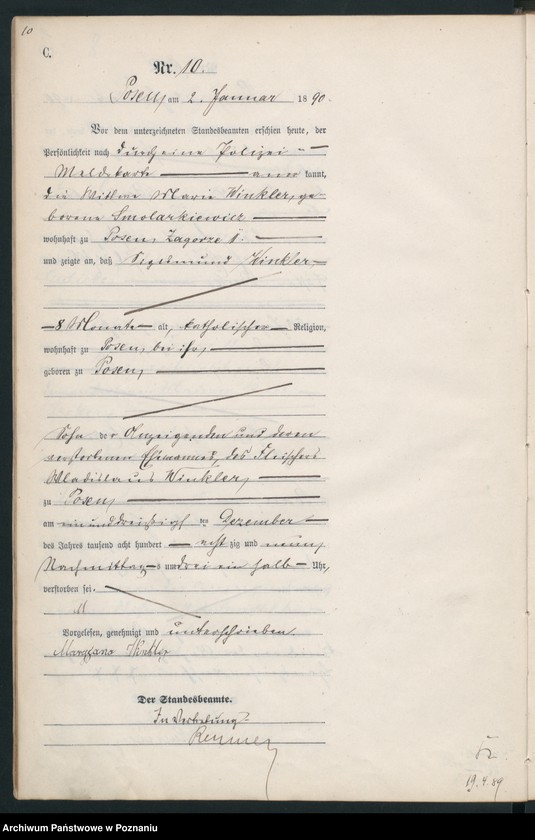 10
C.
Nr. 10.
Posen, am 2. Januar 1890.
Vor dem unterzeichneten Standesbeamten erschien heute, der
Persönlichkeit nach durch eine Polizei-
Meldekarte anerkannt,
die Wittwe Marie Winkler, ge-
borene Smolarkiewicz
wohnhaft zu Posen, Zagorze
und zeigte an, daß Siegismund Winkler,
8 Monate alt, katholischer Religion,
wohnhaft zu Posen, bei ihr,
geboren zu Posen,
Sohn der Anzeigenden und deren
verstorbenen Ehemannes, des Fleischers
Wladislaus Winkler,
zu Posen,
am einunddreißigsten Dezember
des Jahres tausend acht hundert achtzig und neun,
Nachmittags um drei ein halb Uhr,
verstorben sei.
Vorgelesen, genehmigt und unterschrieben.
Maryanna Winkler
Der Standesbeamte.
In Vertretung.
19.4.89
Archiwum Państwowe w Poznaniu